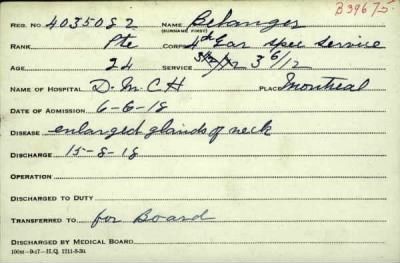 B39675
REG. NO. 4035082 NAME Belanger
(SURNAME FIRST)
RANK Pte CORPS 4th Gar spec service
AGE 24 SERVICE 3 6/12
NAME OF HOSPITAL D.M.C.H PLACE Montreal
DATE OF ADMISSION 6-6-18
DISEASE enlarged glands of neck
DISCHARGE 15-8-18
OPERATION
DISCHARGED TO DUTY
TRANSFERRED TO for Board
DISCHARGED BY MEDICAL BOARD
100M-9-17-H.Q. 1711-8-30.